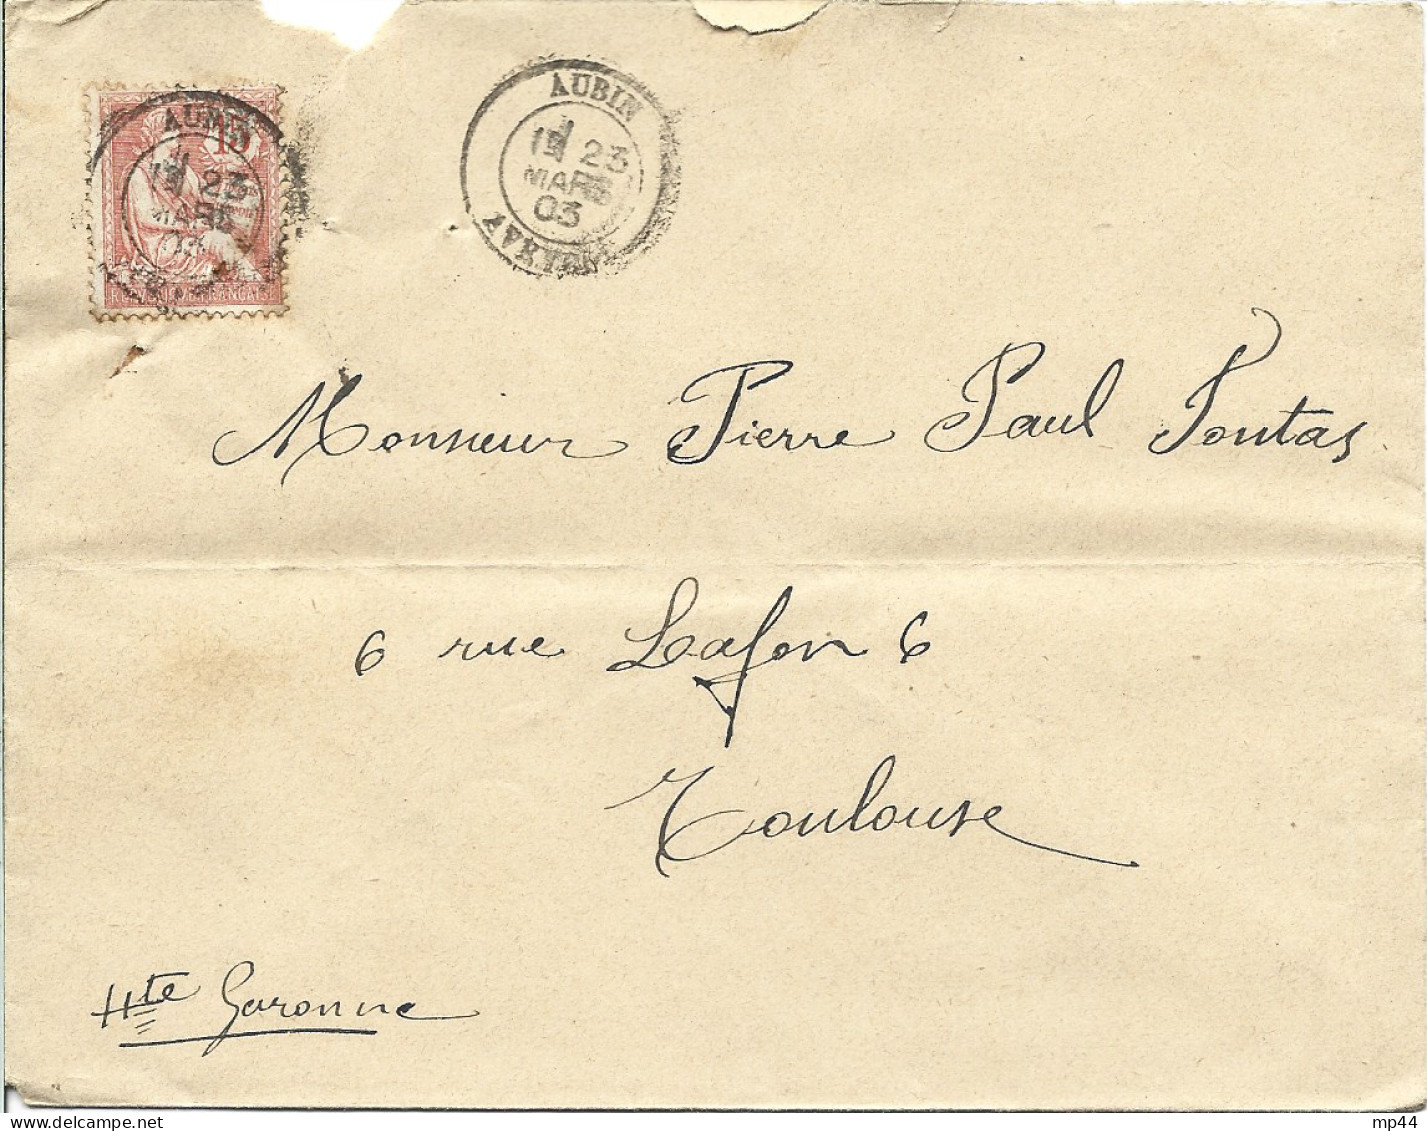 15
AUBIN
23
MARS
03
RÉPUBLIQUE FRANÇAISE
AUBIN
23
MARS
03
AVEYRON
Monsieur Pierre Paul Fontas
6 rue Lafon 6
Toulouse
Hte Garonne
mp44